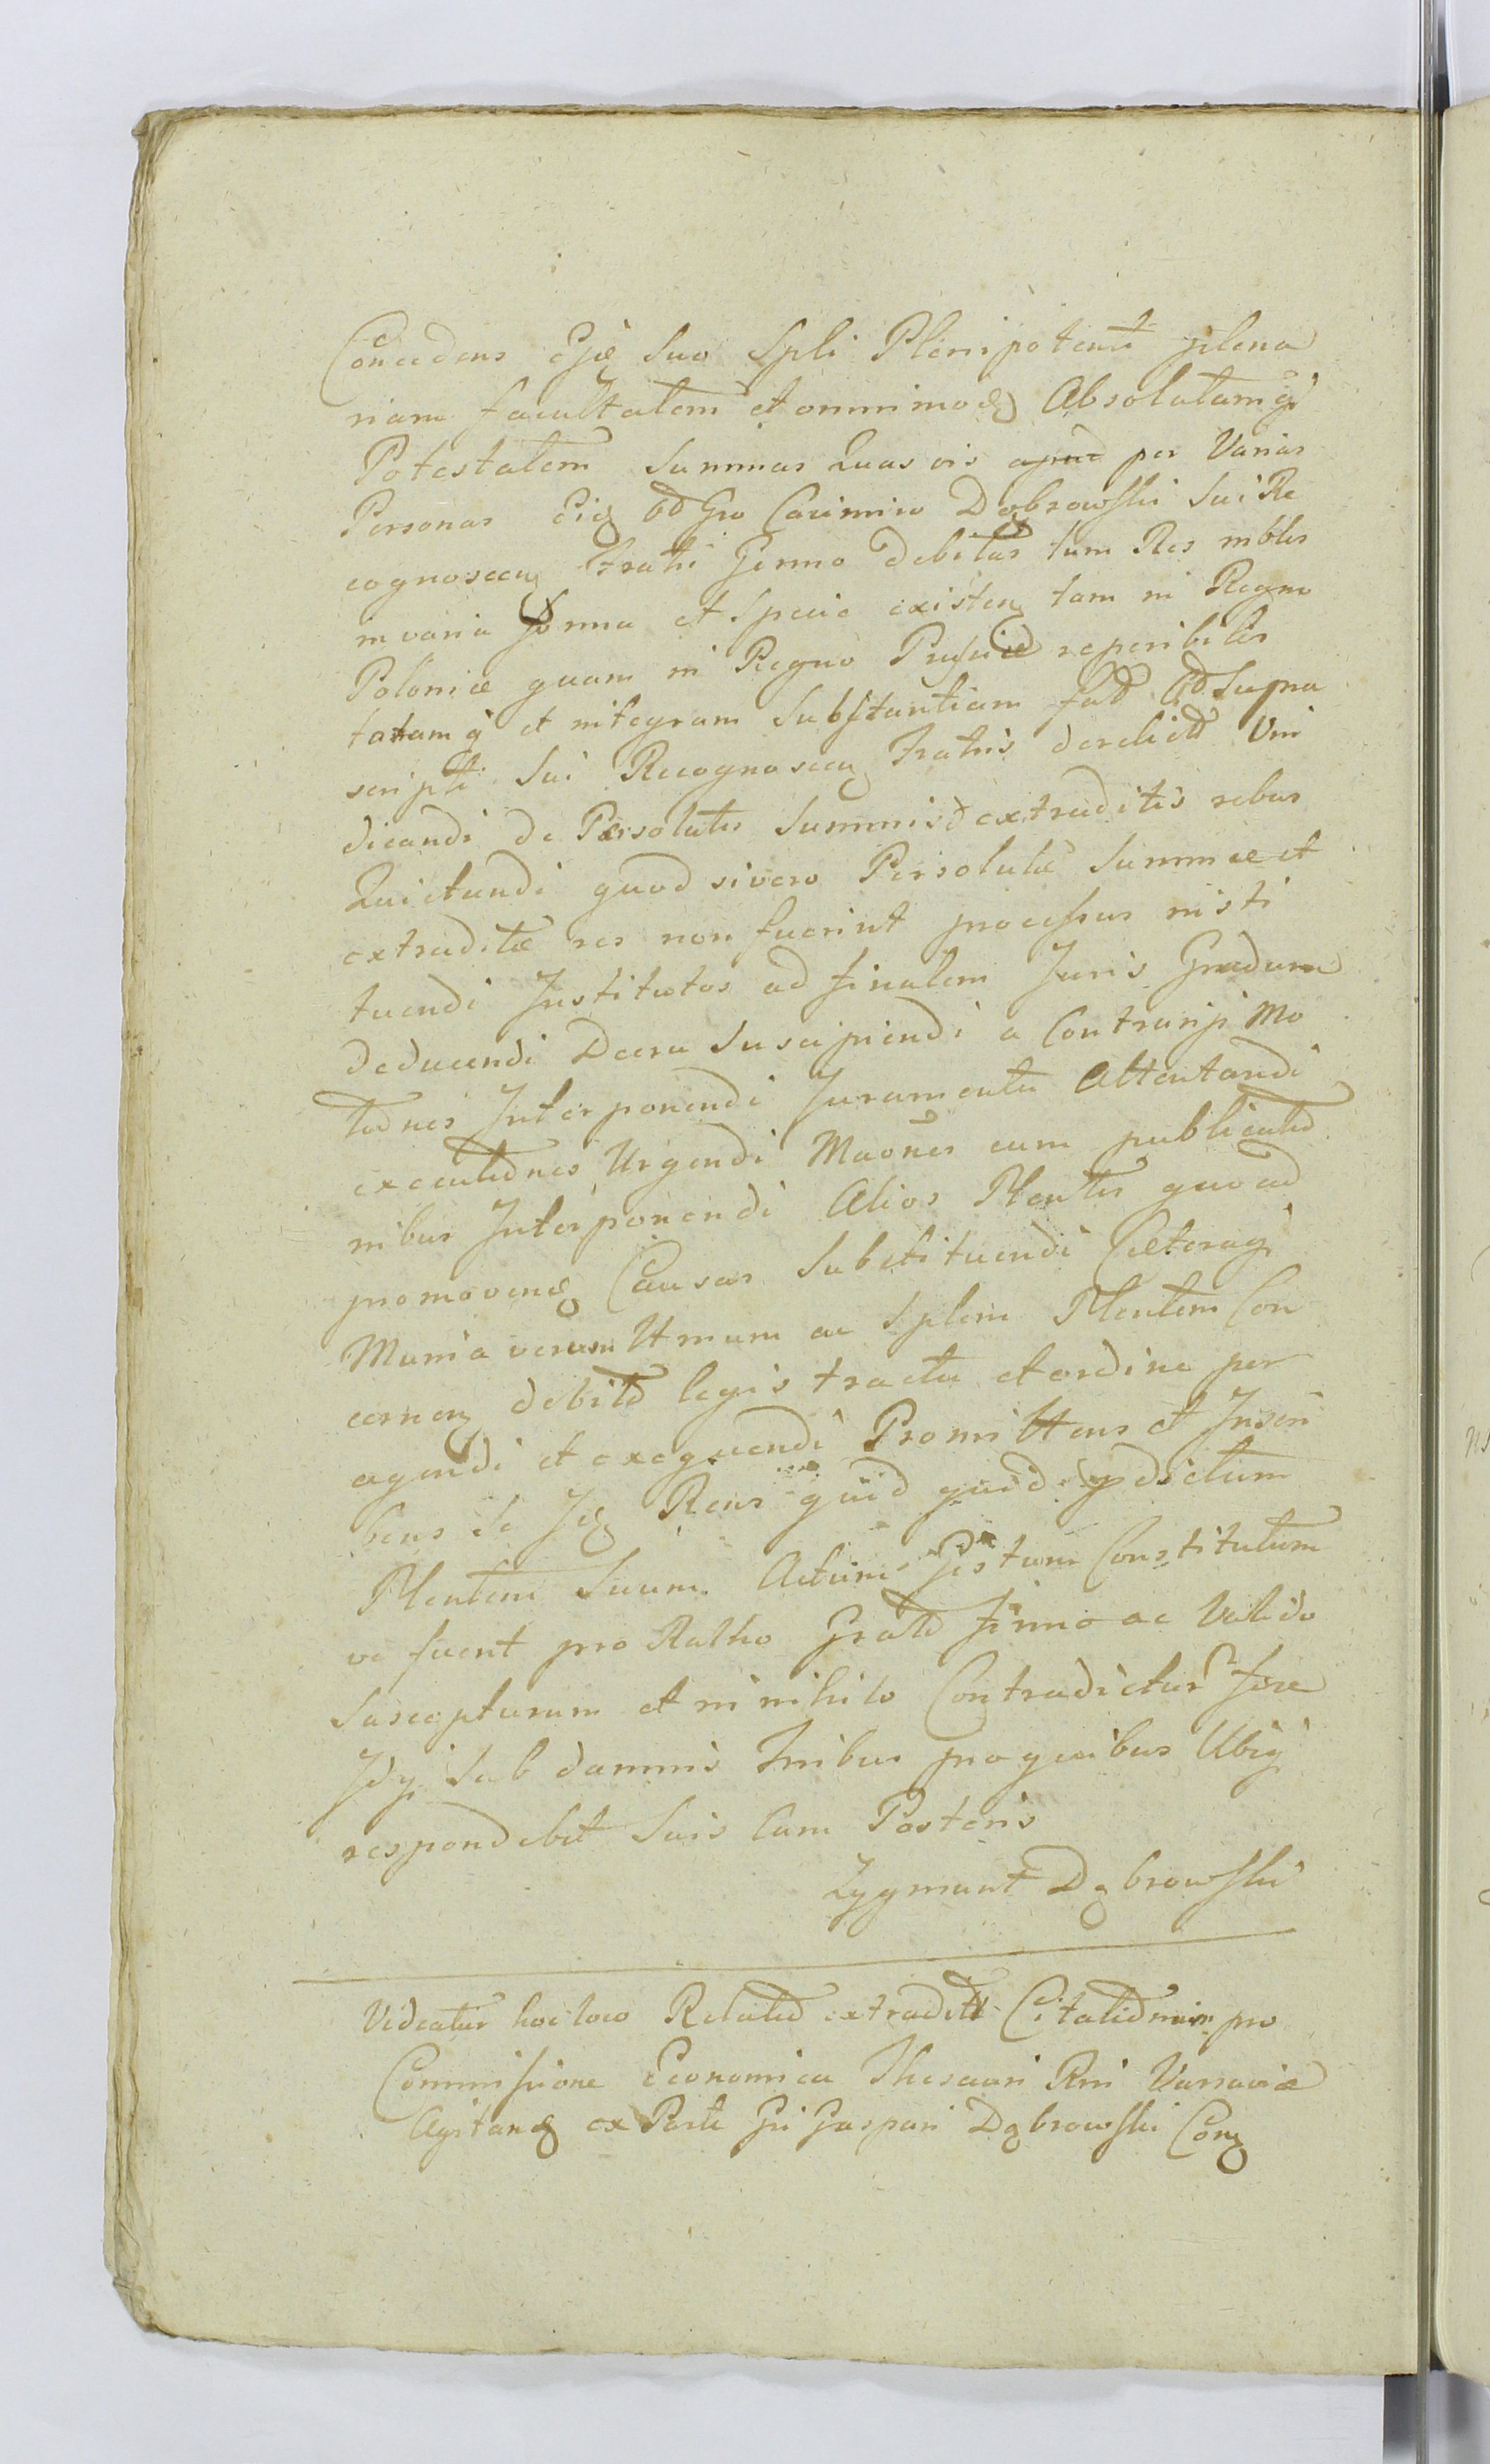 Concedens Ejdē suo Spli Plenipotenti plena
riam facultatem et omnimodā Absolutamq̃
Potestatem Summas Quas vis apud per Varias
Personas Eid Gd Gro Casimiro Dąbrowski sui Re
cognoscen Fratri Germo debitas tum Res mbles
in varia forma et specie existen tam in Regno
Poloniæ quam in Regno Prussiæ reperibiles
totamq̃ et integram Substantiam Gd Supra
scripti sui Recognoscen Fratris derelict Vin
dicandi de Persolutis Summis et extraditis rebus
Quietandi quod si vero Persolutæ Summæ et
extraditæ res non fuerint processus insti
tuendi Institutos ad finalem Juris Gradum
deducendi Decra Suscipiendi a Contrarijs Mo
tiones Interponendi Juramenta Attentandi
executiones Urgendi Maones cum publicatio
nibus Interponendi Alios Plentes quoad
promovend Causas Substituendi Cæteraq̃
Munia verum Ltmum ac Splem Plentem Con
cernen debito legis tractu et ordine per
agendi et exequendi Promittens et Inscri
bens se Id Rens quid quid p dictum
Plentem Suum Actum Gestum Constitutum
ve fuerit pro Ratho Grato firmo ac Valido
Suscepturum et in nihilo Contradictur fore
Idq̃ Sub damnis Trribus pro quibus Ubiq̃
respondebit Suis Cum Posteris
Zygmunt Dąbrowski
Videatur hoc loco Relatio extradit Citationis pro
Commissione Economica Thesauri Rni Varsaviæ
Agitand ex Parte Gri Gaspari Dąbrowski Con